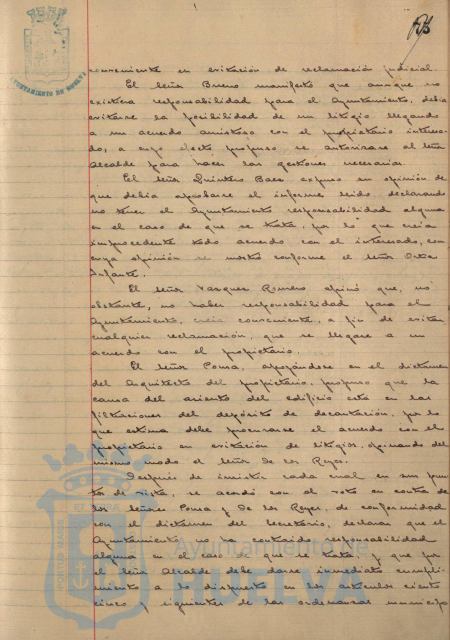 AYUNTAMIENTO DE HUELVA
conveniente en evitación de reclamación judicial.
El Señor Bueno manifestó que aunque no
existiera responsabilidad para el Ayuntamiento, debía
evitarse la posibilidad de un litigio llegando
a un acuerdo amistoso con el propietario interesa-
do, a cuyo efecto propuso se autorizase al Señor
Alcalde para hacer las gestiones necesarias.
El Señor Quintero Baez expuso su opinión de
que debía aprobarse el informe leido declarando
no tener el Ayuntamiento responsabilidad alguna
en el caso de que se trata, por lo que creia
improcedente todo acuerdo con el interesado, con
cuya opinión se mostró conforme el Señor Oria
Infante.
El Señor Vazquez Romero opinó que, no
obstante, no haber responsabilidad para el
Ayuntamiento, creia conveniente, a fin de evitar
cualquier reclamación, que se llegase a un
acuerdo con el propietario.
El Señor Coma, apoyándose en el dictamen
del Arquitecto del propietario, propuso que la
causa del asiento del edificio está en las
filtraciones del depósito de decantación, por lo
que estima debe procurarse el acuerdo con el
propietario en evitación de litigios, opinando del
mismo modo el Señor de los Reyes.
Después de insistir cada cual en sus pun-
tos de vista, se acordó con el voto en contra de
los Señores Coma y De los Reyes, de conformidad
con el dictamen del Secretario, declarar que el
Ayuntamiento no ha contraido responsabilidad
alguna en el caso de que se trata, y que por
el Señor Alcalde debe darse inmediato cumpli-
miento a lo dispuesto en los artículos ciento
cinco y siguientes de las ordenanzas municipa
Ayuntamiento de
HUELVA